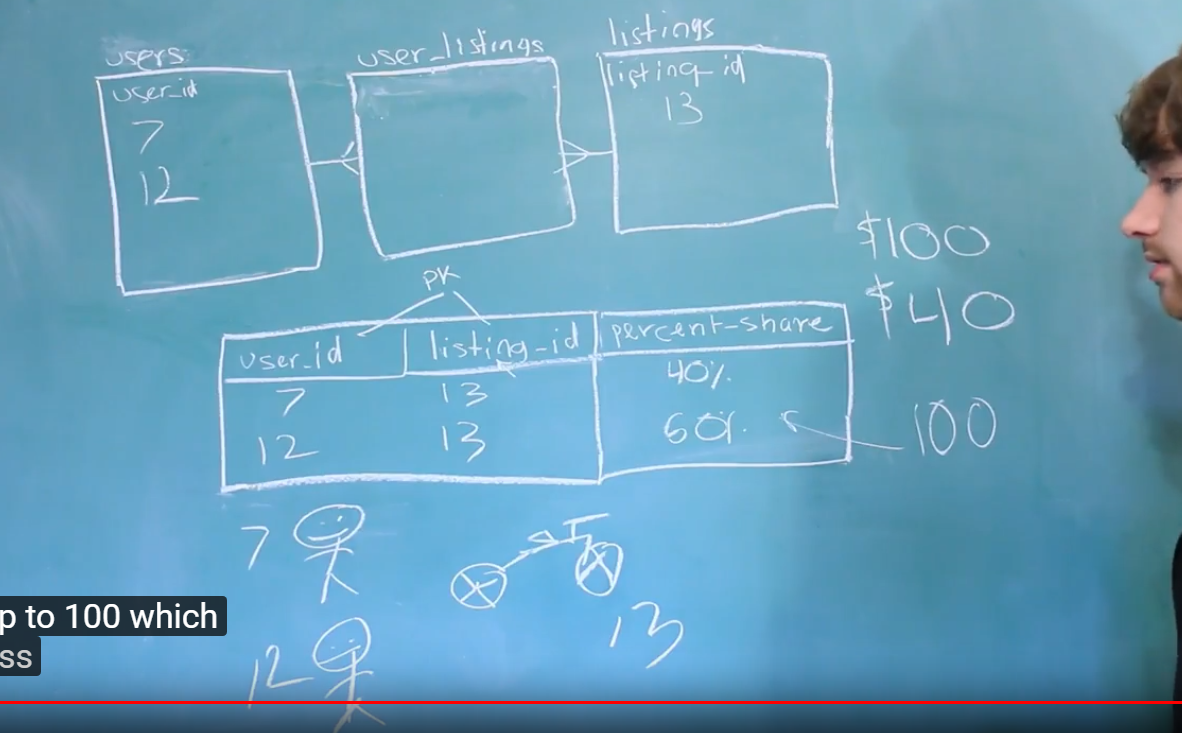 users
user_id
7
12
user_listings
listings
listing_id
13
$100
$40
PK
user_id listing_id percent-share
7 13 40%
12 13 60%
100
7
12
13
p to 100 which
ss